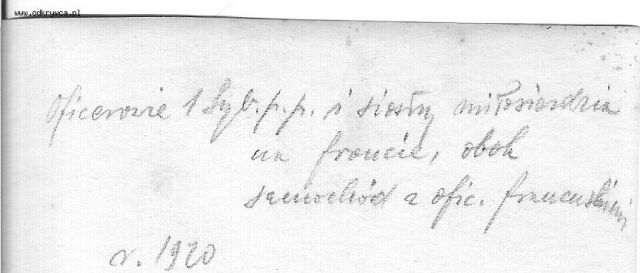 www.odkrywca.pl
Oficerowie 1 Syb. p.p. i siostry miłosierdzia
na froncie, obok
samochód z ofic. francuskimi
r. 1920